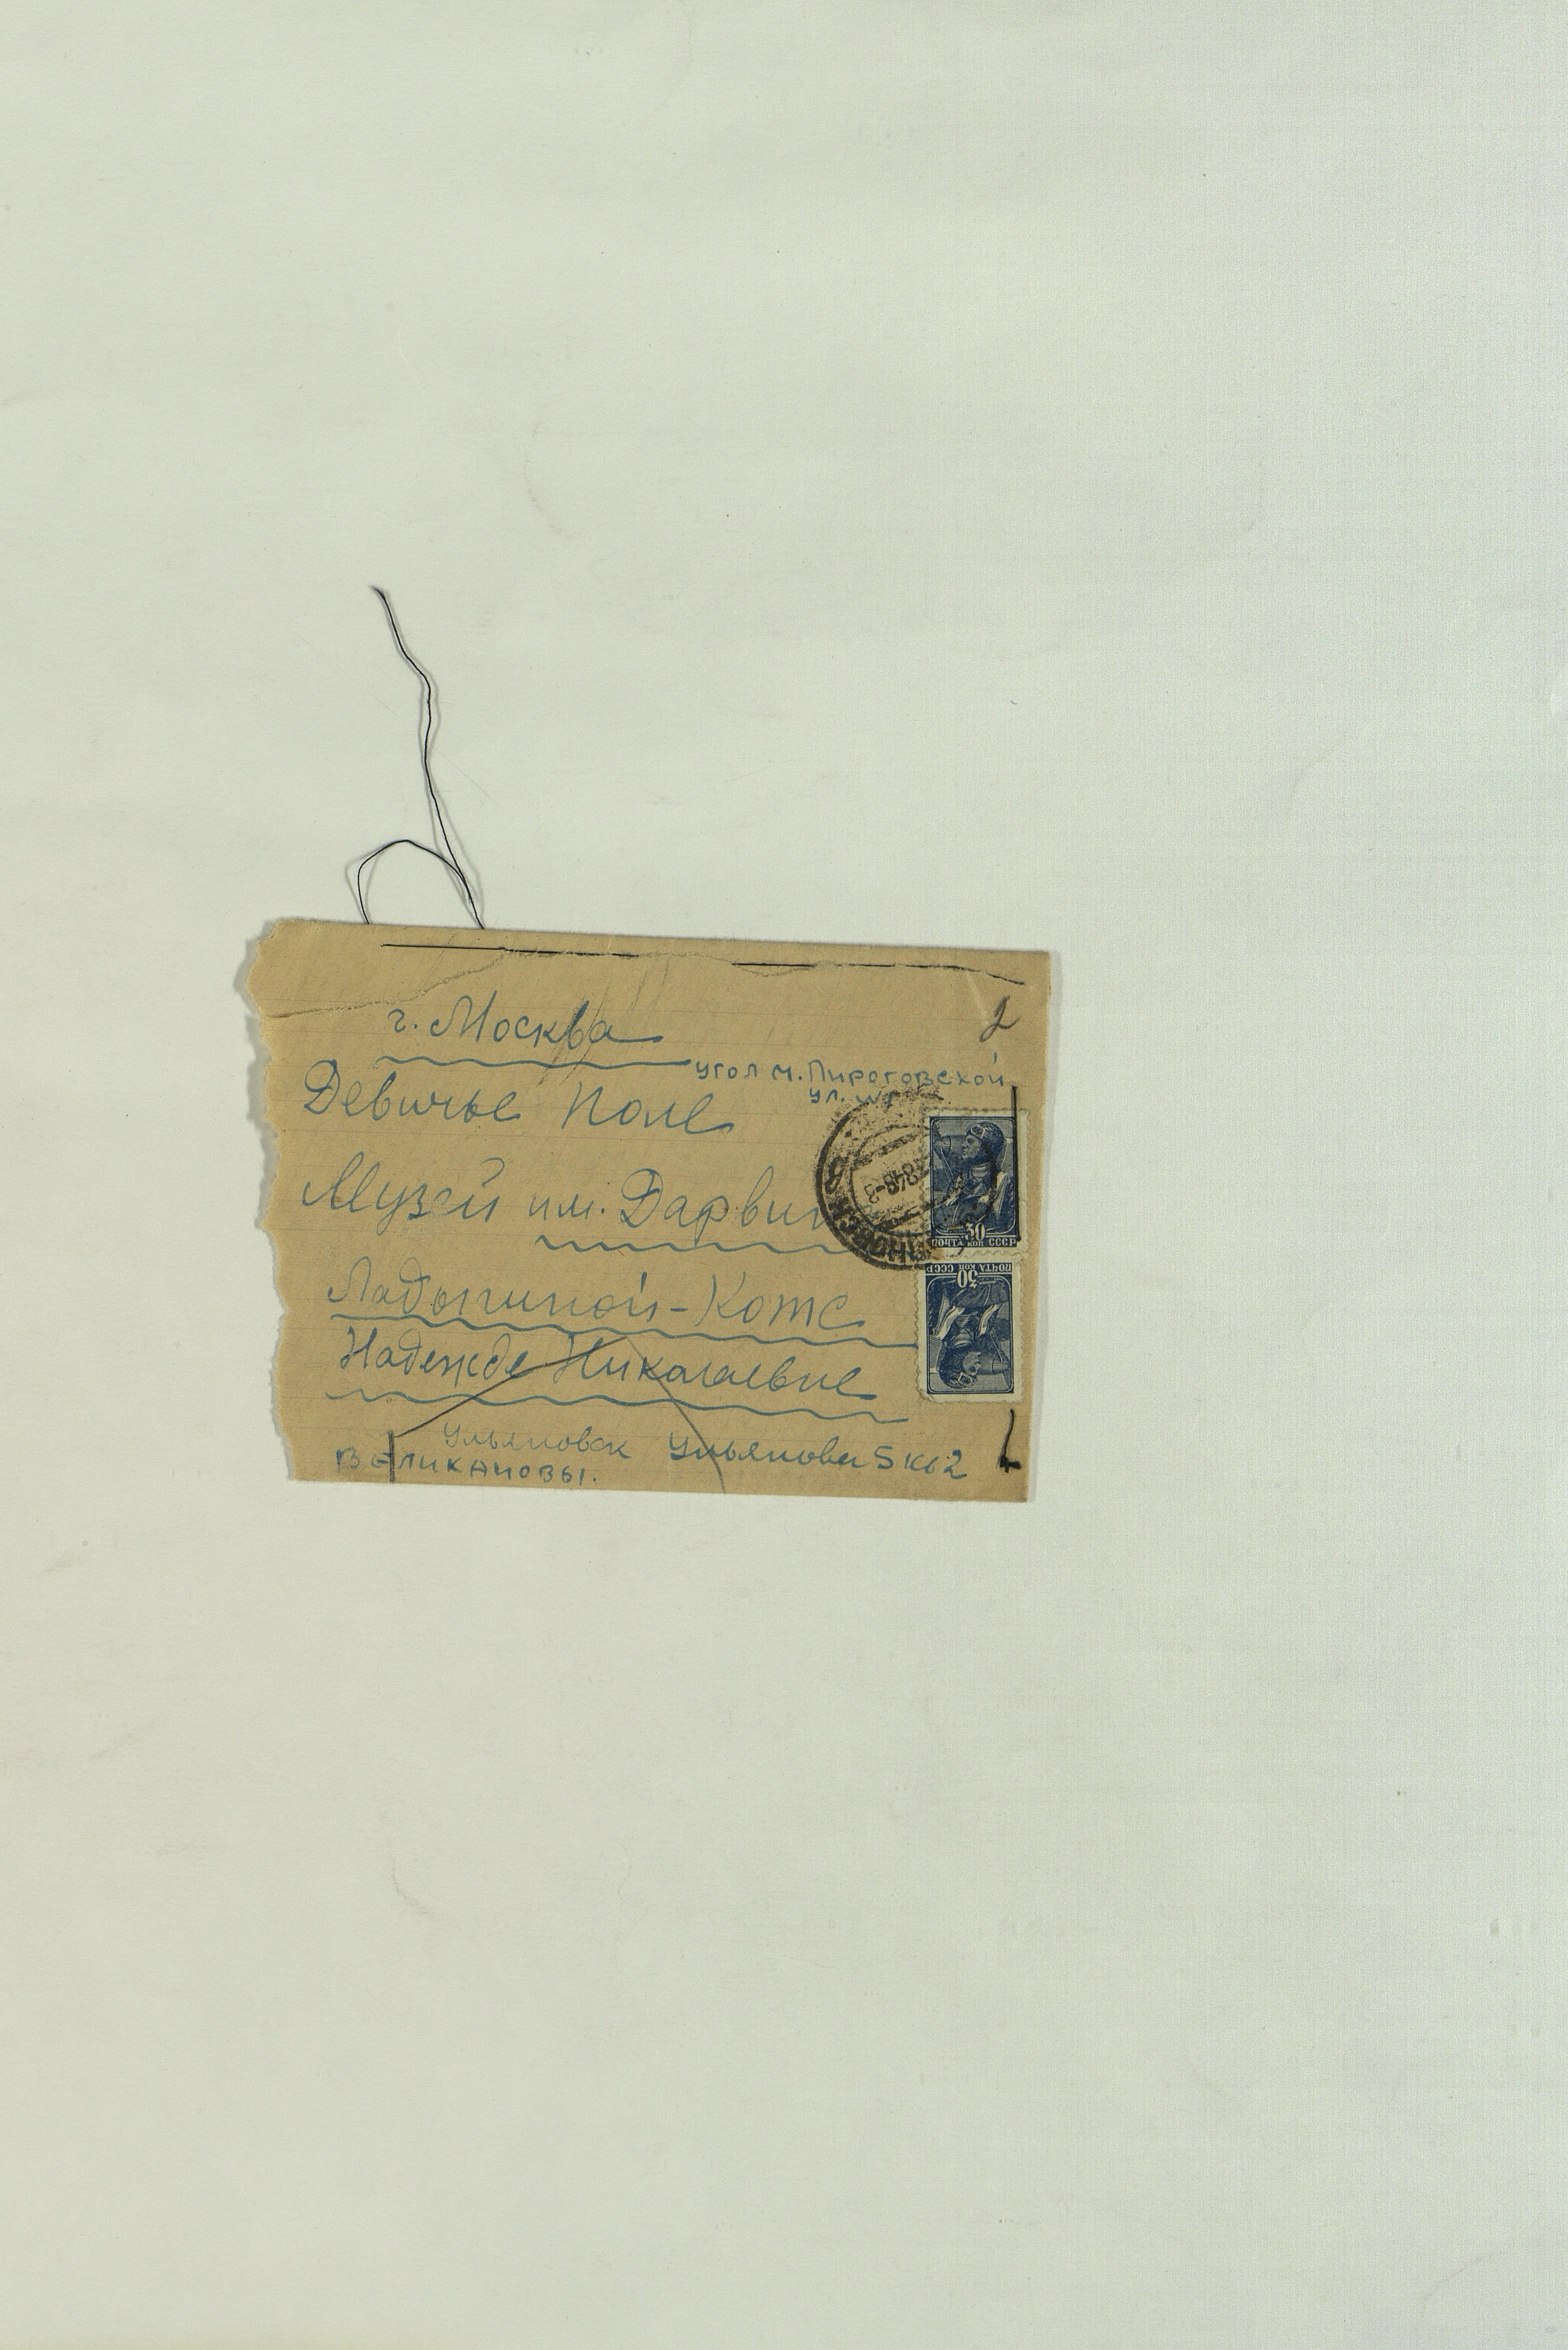 2
г. Москва
угол М. Пироговской
ул.
Девичье Поле
Музей им. Дарвин
Ладыгиной-Котс
Надежде Николаевне
Ульяновск Ульянова 5 кв 2
ВЕЛИКАНОВЫ.
30
ПОЧТА КОП СССР
30
ПОЧТА КОП СССР